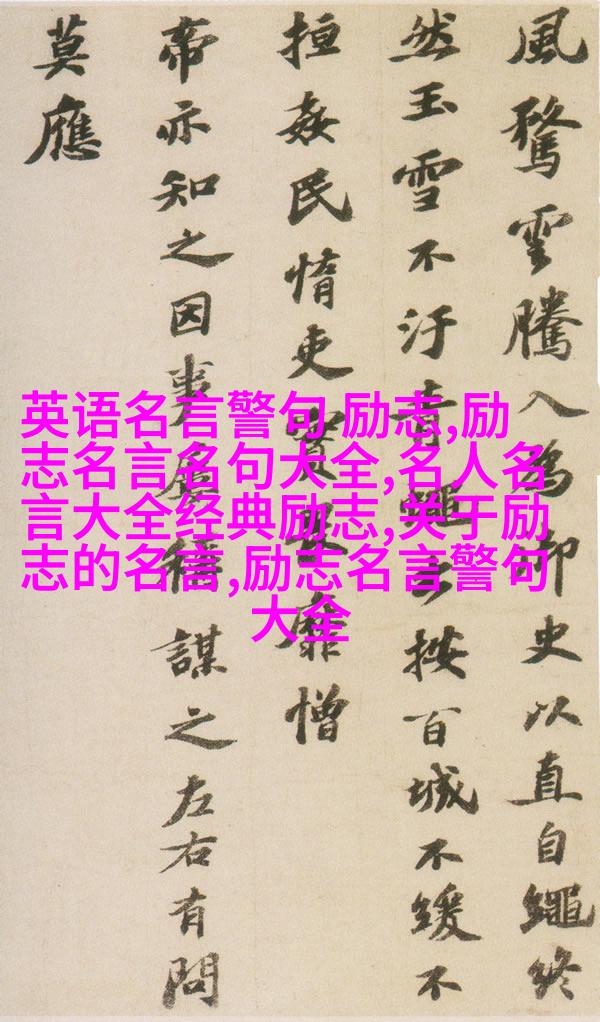 風騖雲騰入為御史以直自繩終
然玉雪不汙青蠅出按百城不緩不
姦民惰吏實畏靡憎
帝亦知之因事屢稱謀之左右有問
莫應
英语名言警句 励志,励
志名言名句大全,名人名
言大全经典励志,关于励
志的名言,励志名言警句
大全